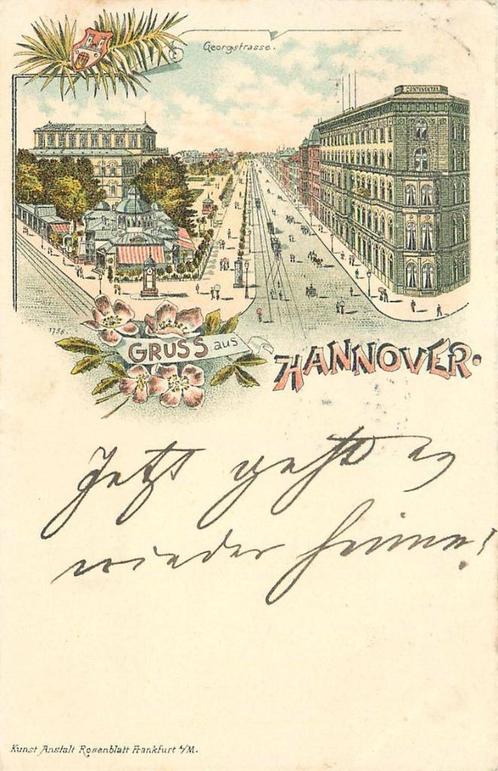 Georgstrasse.
CONTINENTAL
1756.
GRUSS aus
HANNOVER.
Jetzt geht es
wieder heim!
Kunst Anstalt Rosenblatt Frankfurt a/M.